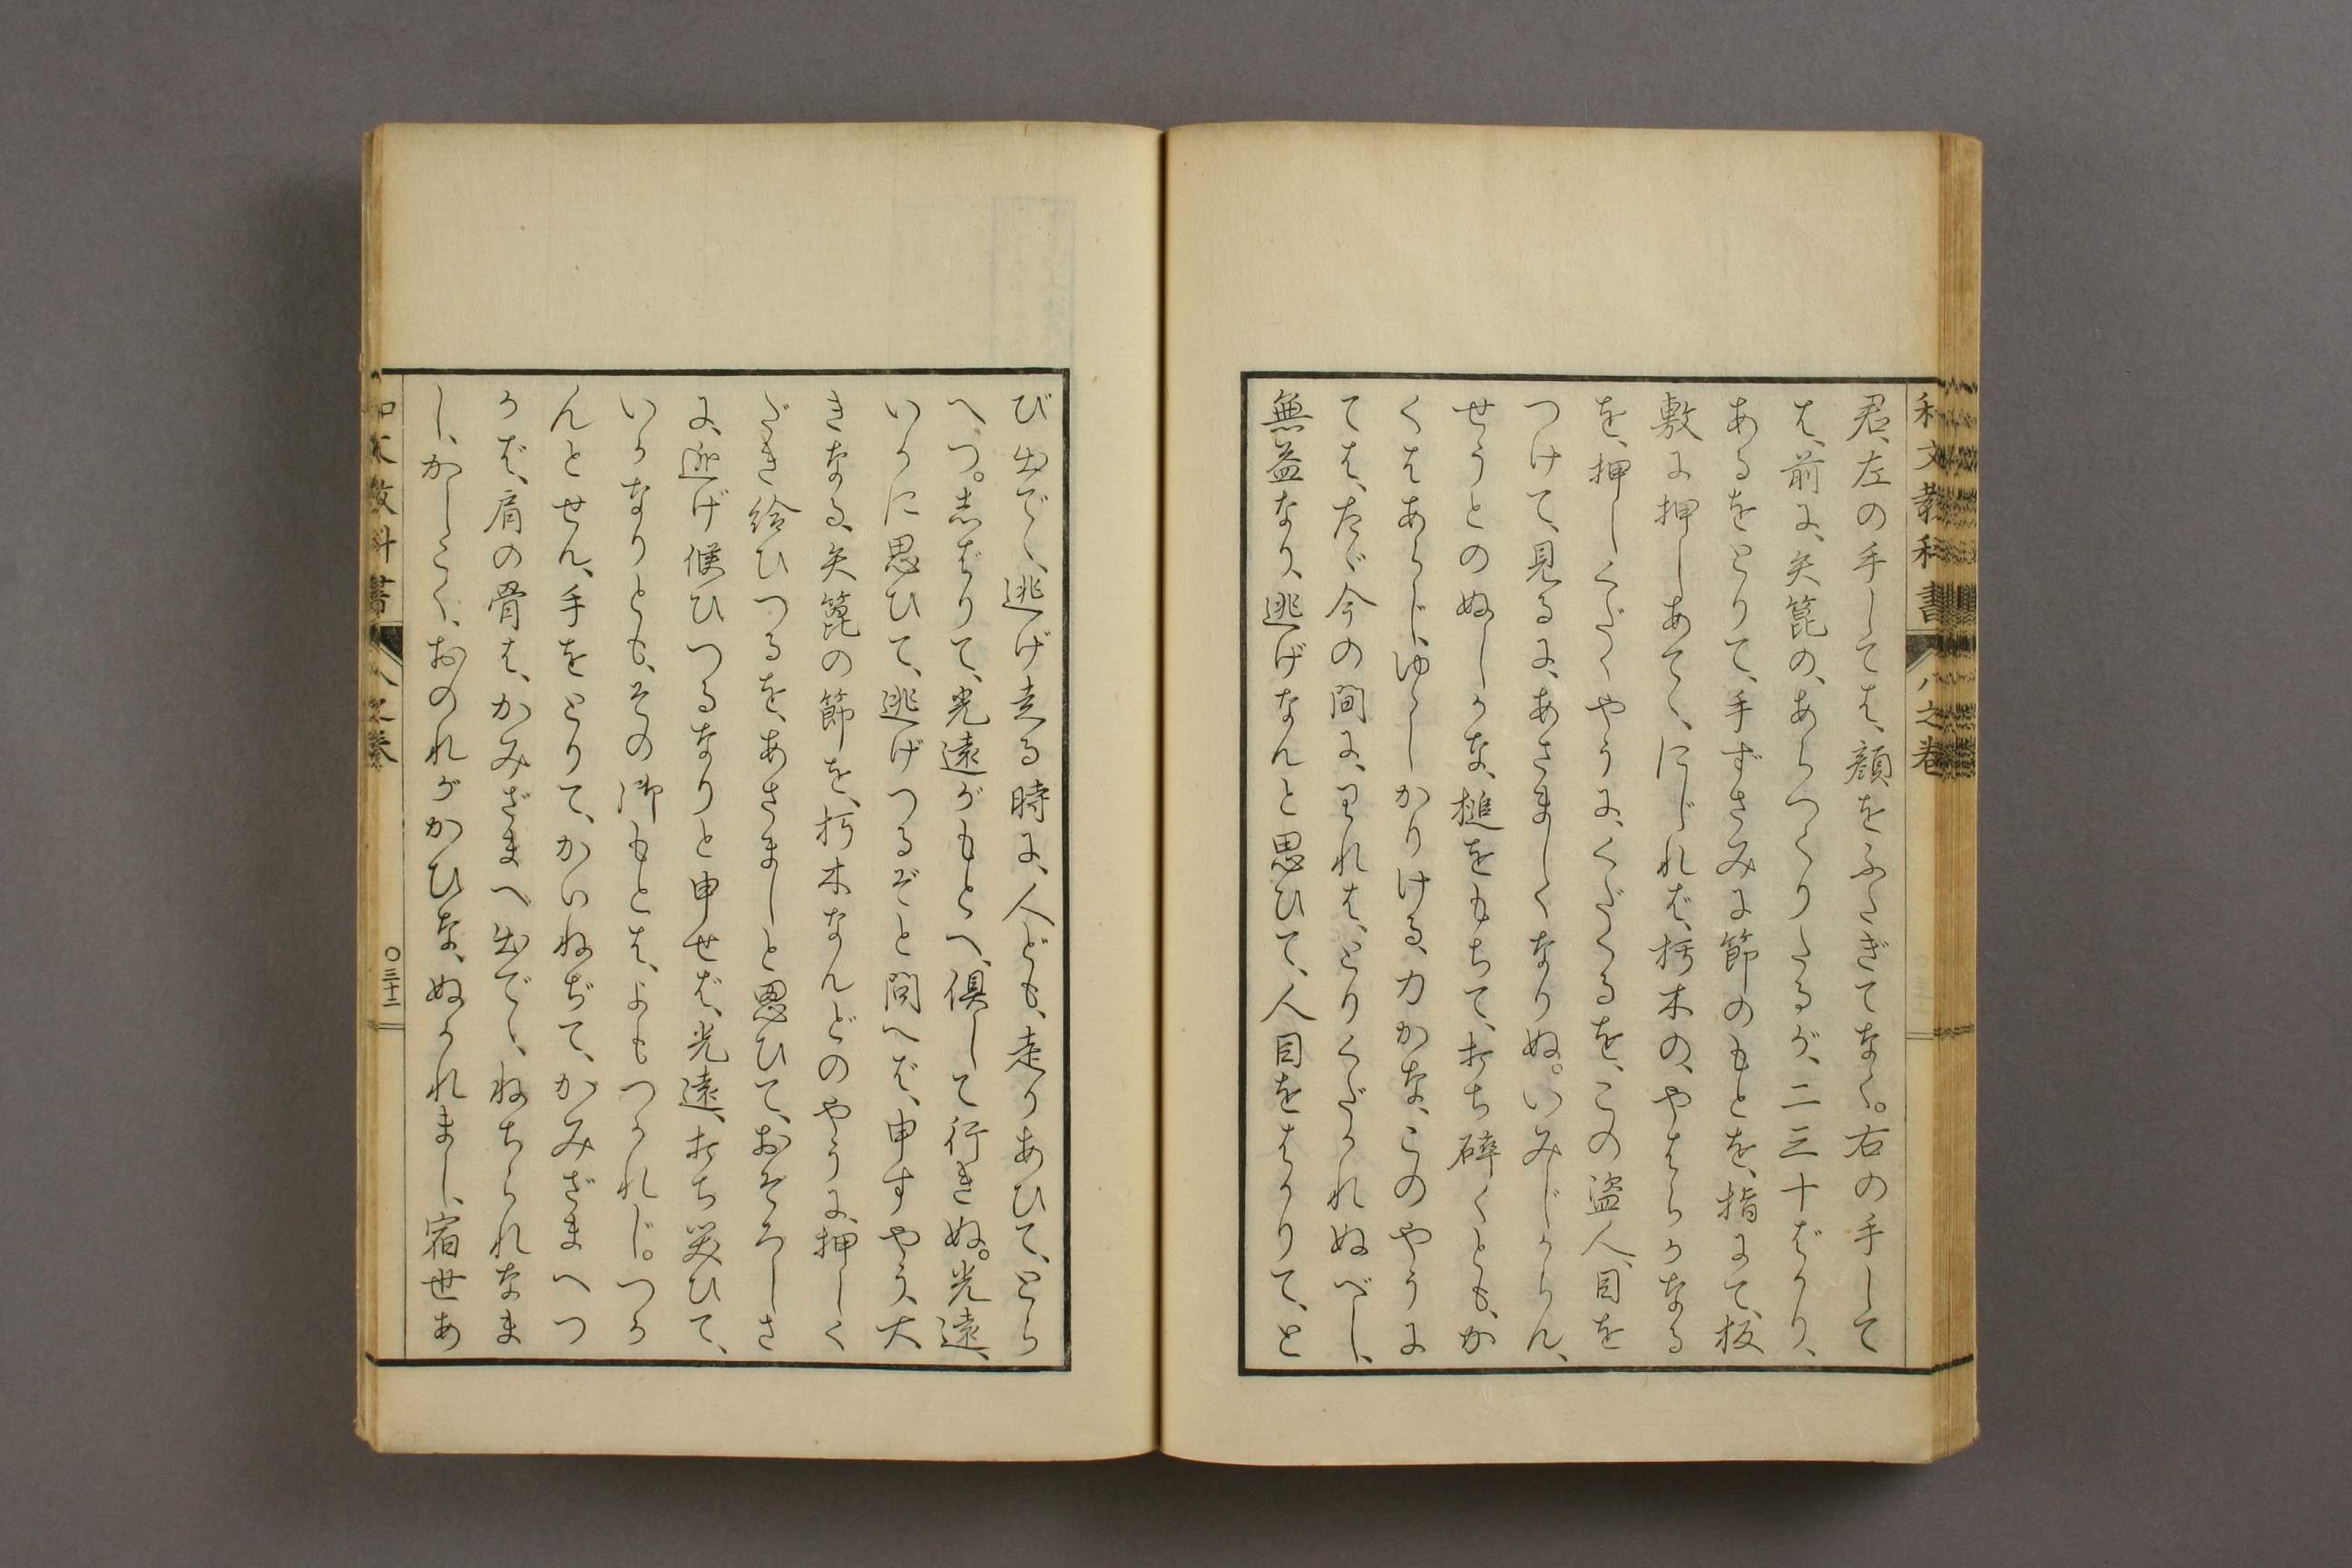 和文教科書 八之巻
君、左の手しては、顔をふたぎてなく。右の手して
は、前に、矢箆の、あらつくりたるが、二三十ばかり、
あるをとりて、手ずさみに節のもとを、指にて、板
敷に押しあてゝ、にじれば、朽木の、やはらかなる
を、押しくだくやうに、くだくるを、この盗人、目を
つけて、見るに、あさましくなりぬ。いみじからん、
せうとのぬしかな、槌をもちて、打ち碎くとも、か
くはあらじ、ゆゝしかりける、力かな、このやうに
ては、たゞ今の間に、われは、とりくだかれぬべし、
無益なり、逃げなんと思ひて、人目をはかりて、と
び出でゝ、逃げ走る時に、人ども、走りあひて、とら
へつ。志ばりて、光遠がもとへ、倶して行きぬ。光遠、
いかに思ひて、逃げつるぞと問へば、申すやう、大
きなる、矢箆の節を、朽木なんどのやうに、押しく
だき給ひつるを、あさましと思ひて、おそろしさ
に、逃げ候ひつるなりと申せば、光遠、打ち笑ひて、
いかなりとも、その御もとは、よもつかれじ。つか
んとせん、手をとりて、かいねぢて、かみざまへつ
かば、肩の骨は、かみざまへ出でゝ、ねちられなま
し、かしこく、おのれがかひな、ぬかれまし、宿世あ
〇三十二
和文教科書 八之巻